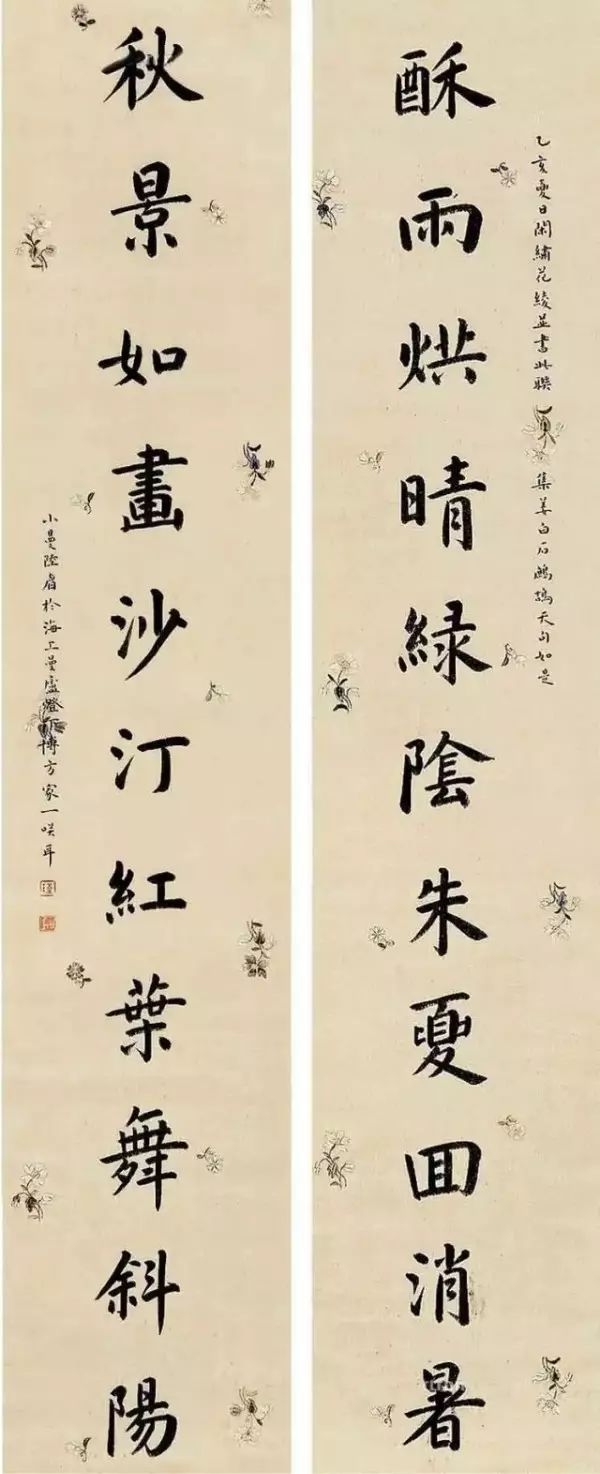 乙亥夏日閑繡花綾並書此聯 集姜白石鷓鴣天句如是
酥雨烘晴綠陰朱夏回消暑
秋景如畫沙汀紅葉舞斜陽
小曼陸眉於海上曼廬燈下博方家一咲耳